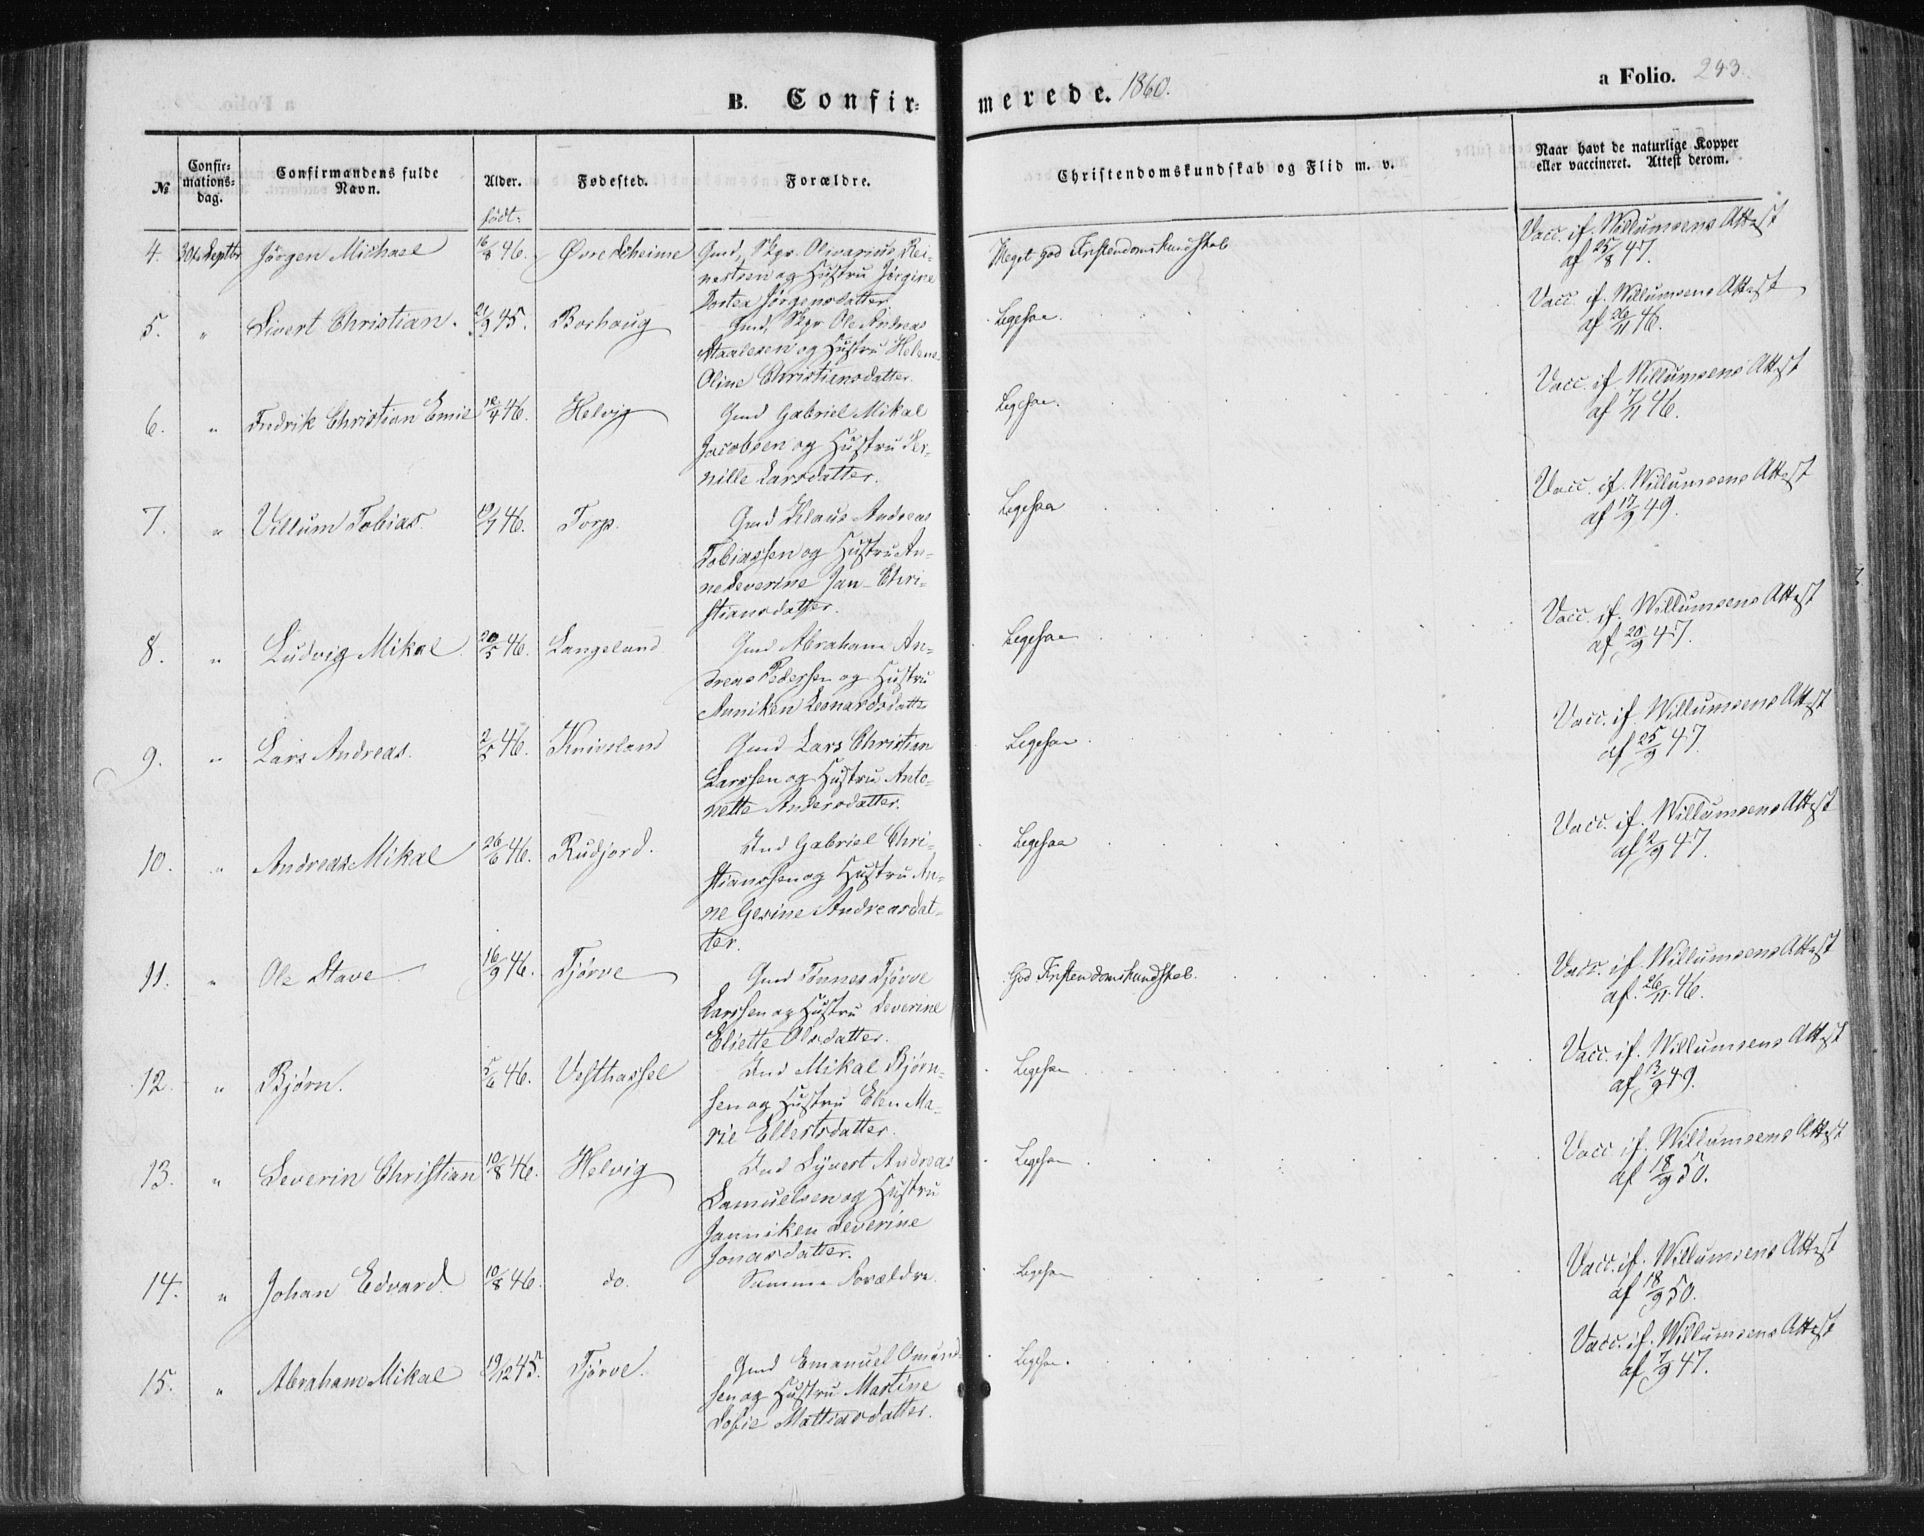 B. Confir-
merede. 1860.
a Folio. 243.
№
Confir-
mations-
dag.
Confirmandens fulde
Navn.
Alder.
født:
Fødested.
Forældre.
Christendomskundskab og Flid m. v.
Naar havt de naturlige Kopper
eller vaccineret. Attest derom.
4. 30te Septbr Jörgen Michael 16/8 46. Øvre
Gmd, Skpr. Olivarius Rei-
nertsen og Hustru Jörgine
Dortea Jørgensdatter
Meget god Kristendomskundskab
Vacc. if. Willumsens Attest
af 25/8 47.
5. " Sivert Christian. 21/9 45. Borhaug
Gmd, Skpr Ole Andreas
Staalesen og Hustru Helene
Oline Christiensdatter.
Ligesaa.
Vacc. if. Willumsens Attest
af 26/11 46.
6. " Fredrik Christian Emil 18/4 46. Helvig
Gmd Gabriel Mikal
Jacobsen og Hustru Per-
nille Larsdatter.
Ligesaa.
Vacc. if. Willumsens Attest
af 7/11 46.
7. " Villum Tobias. 46. Torp.
Gmd Klaus Andreas
Tobiassen og Hustru An-
ne Severine Jan-Chri-
stiansdatter.
Ligesaa
Vacc. if. Willumsens Attest
af 17/9 49.
8. " Ludvig Mikal 20/5 46. Langeland
Gmd Abraham An-
dreas Pedersen og Hustru
Anniken Leonardsdatter
Ligesaa
Vacc. if. Willumsens Attest
af 20/9 47.
9. " Lars Andreas. 2/5 46. Knivsland
Gmd Lars Christian
Larssen og Hustru Anto-
nette Andersdatter.
Ligesaa
Vacc. if. Willumsens Attest
af 25/9 47.
10. " Andreas Mikal 26/6 46. Rudjord.
Ind Gabriel Chri-
stianssen og Hustru An-
ne Gesine Andreasdat-
ter.
Ligesaa
Vacc. if. Willumsens Attest
af 2/9 47.
11. " Ole Stave 16/9 46. Tjørve
Gmd Tønnes Tjørve
Larssen og Hustru Severine
Eliette Olsdatter.
God Kristendomskundskab.
Vacc. if. Willumsens Attest
af. 26/11 46.
12 " Bjørn. 5/6 46. Vesthassel
Ind Mikal Bjørn-
sen og Hustru Elen Ma-
rie Ellertsdatter.
Ligesaa
Vacc. if. Willumsens Attest
af 13/9 49.
13. " Severin Christian 10/8 46. Helvig
Ind Syvert Andreas
Samuelsen og Hustru
Janniken Severine
Jonasdatter.
Ligesaa
Vacc. if. Willumsens Attest
af 18/9 50.
14. " Johan Edvard. 10/8 46. do.
Samme Forældre.
Ligesaa
Vacc. if. Willumsens Attest
af 18/9 50.
15. " Abraham Mikal 19/12 45. Tjørve.
Gmd Emanuel Omund-
sen og Hustru Martine
Sofie Mathiasdatter.
Ligesaa.
Vacc. if. Willumsens Attest
af 7/9 47.